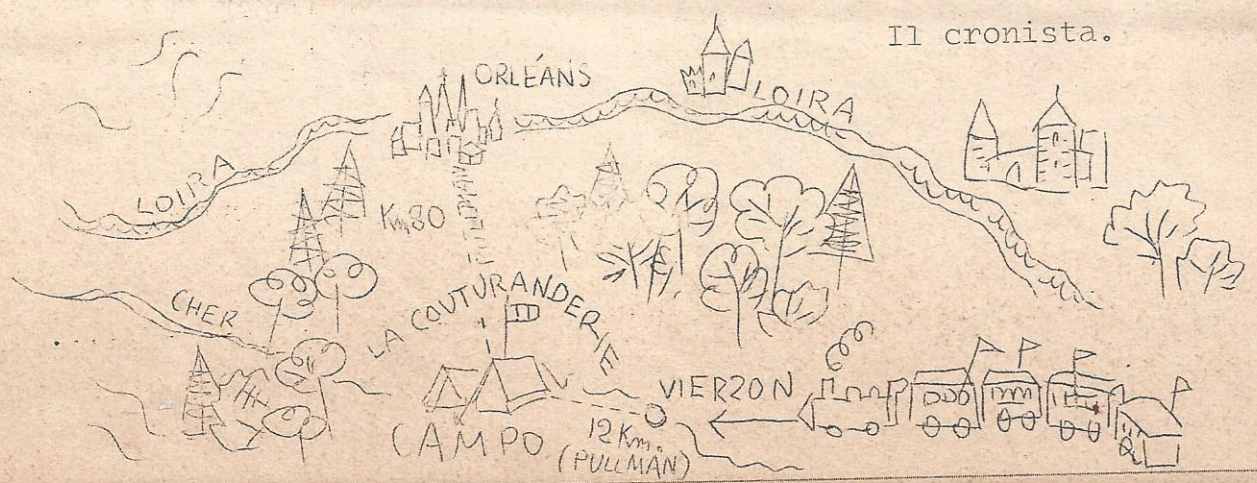 Il cronista.
ORLÉANS
LOIRA
LOIRA
Km 80
CHER
LA COUTURANDERIE
VIERZON
CAMPO
12 Km.
(PULLMAN)